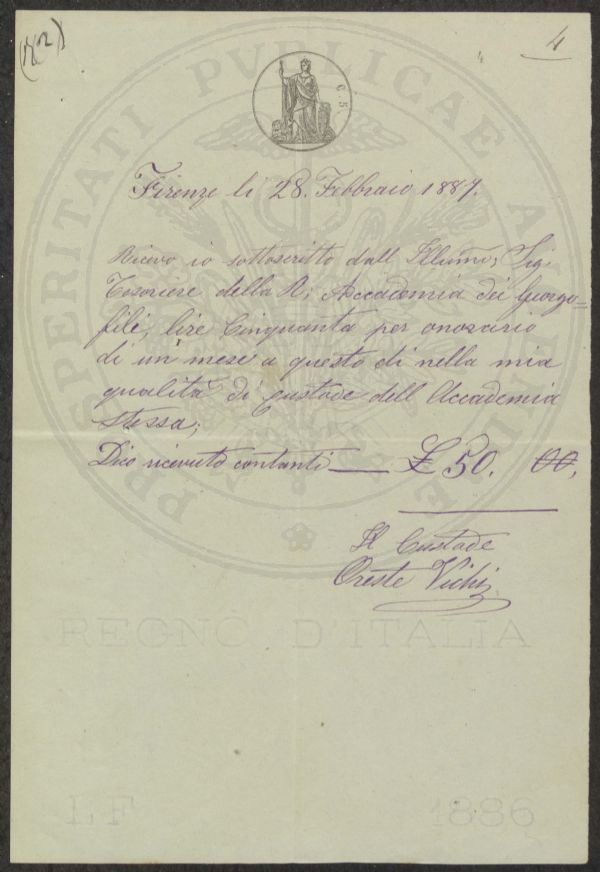 (182)
4
C. 5
Firenze li 28. Febbraio 1887.
Ricevo io sottoscritto dall Illumo; Sig.
Tesoriere della R; Accademia dei Georgo=
fili, lire Cinquanta per onorario
di un mese a questo di nella mia
qualità di Custode dell Accademia
stessa;
Dico ricevuto contanti — £ 50. 00,
Il Custode
Oreste Vichi
PROSPERITATI PVBLICAE AVGENDAE
REGNO D'ITALIA
LF 1886